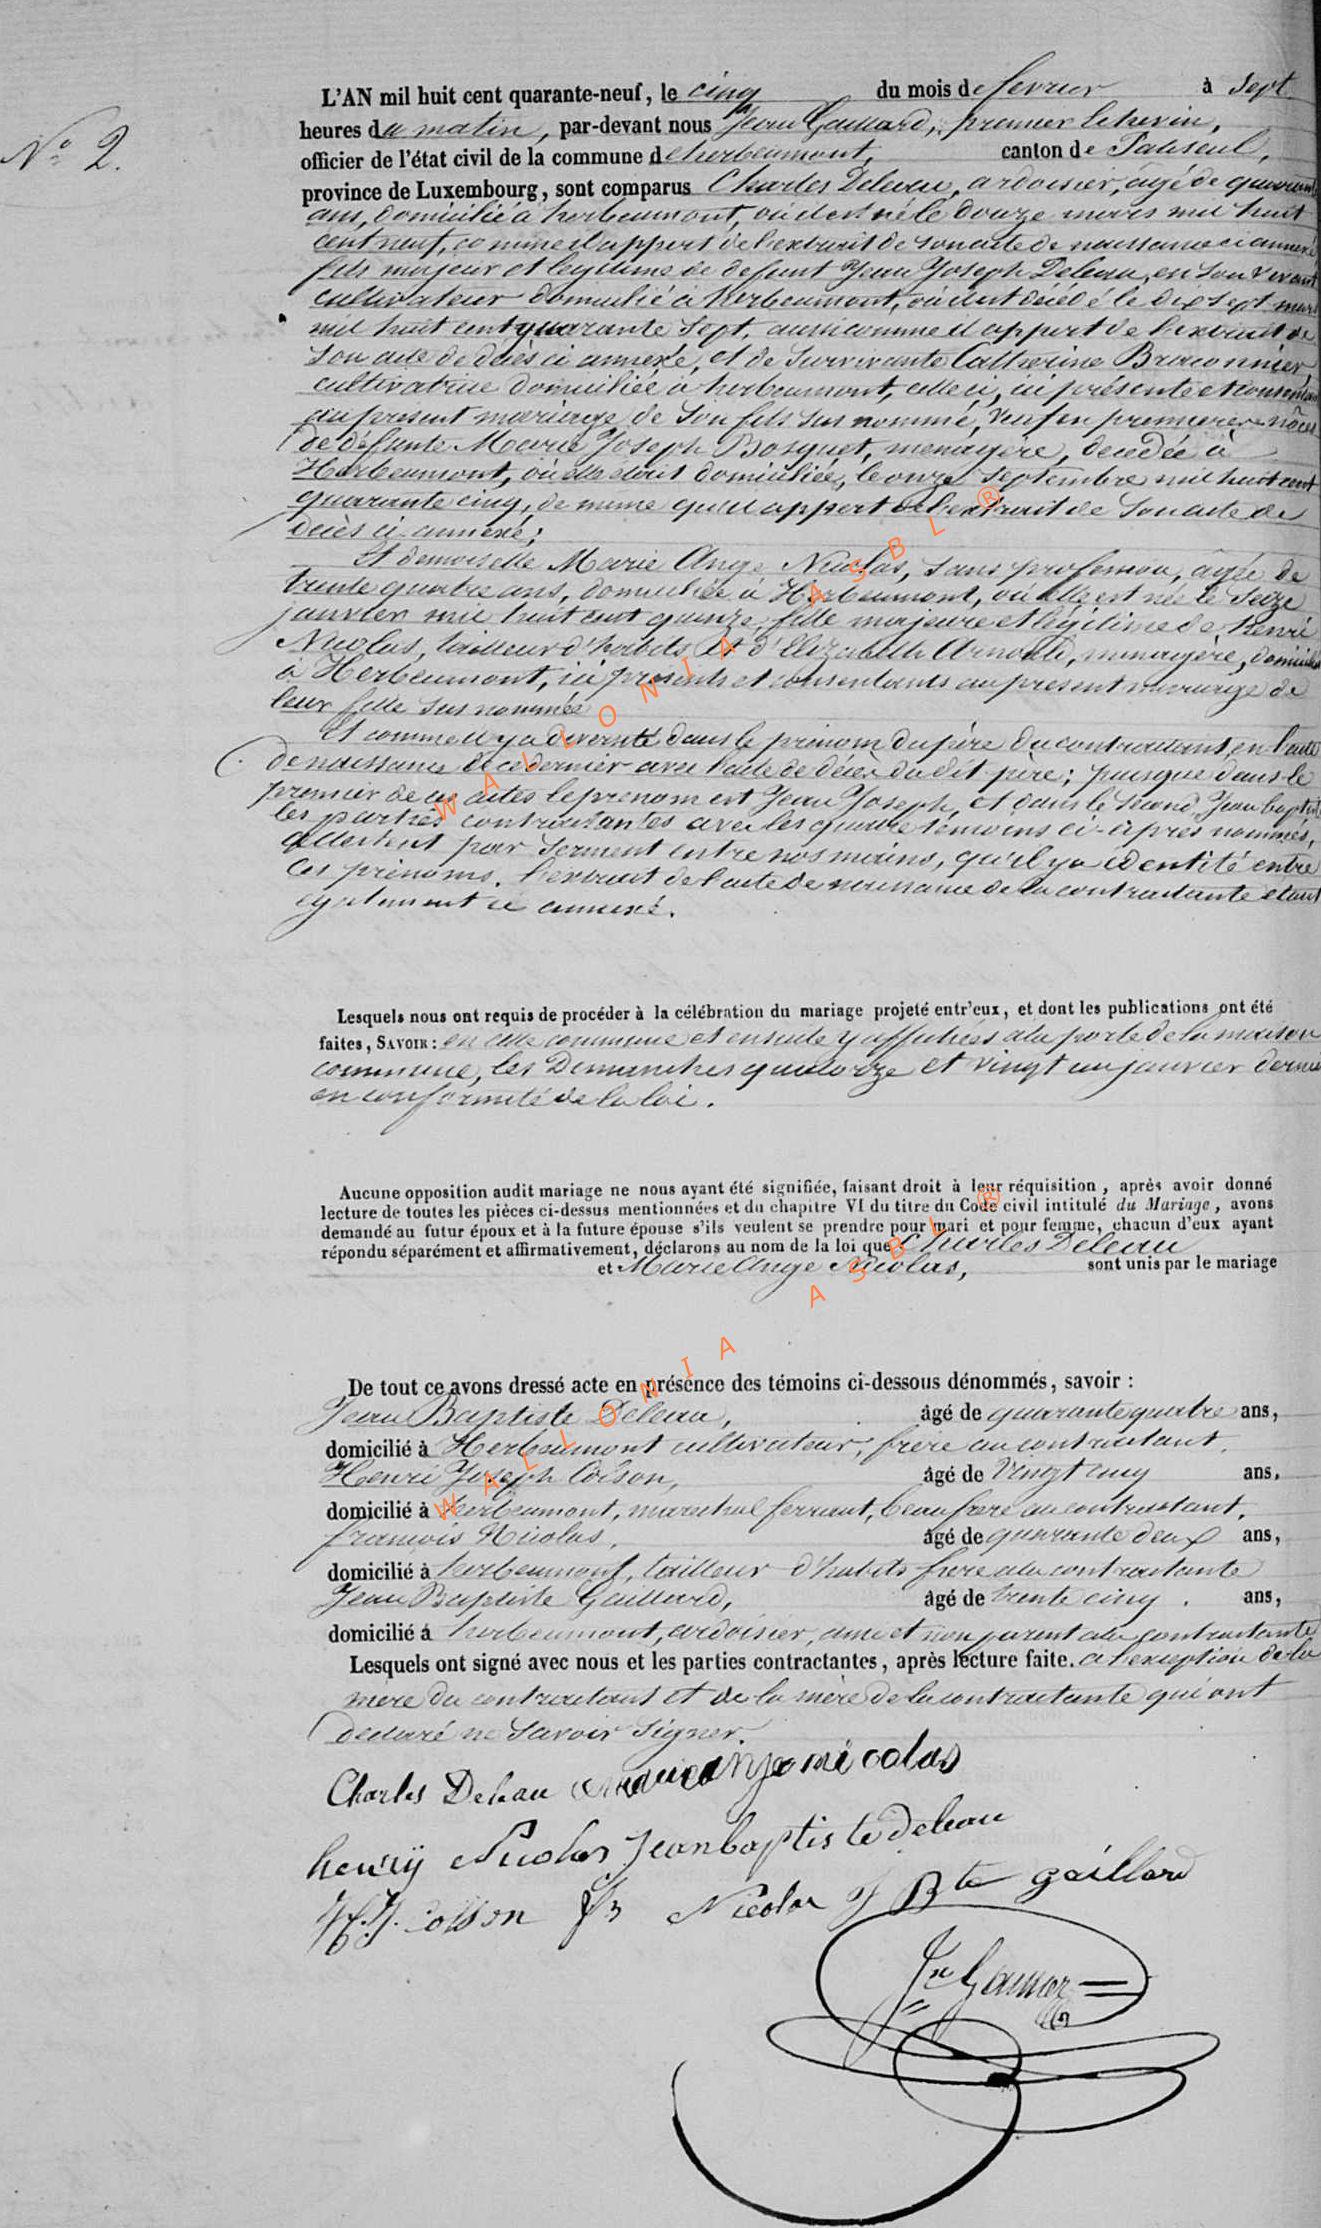 N° 2.
L'AN mil huit cent quarante-neuf, le cinq du mois de fevrier à sept
heures du matin, par-devant nous Jean Gaillard, premier Echevin,
officier de l'état civil de la commune d'herbeumont, canton de Paliseul,
province de Luxembourg, sont comparus Charles Deleau, ardoisier, agé de quarante
ans, domicilié à herbeumont, où il est né le douze mars mil huit
cent neuf, comme il appert de l'extrait de son acte de naissance ci annexé
fils majeur et legitime de defunt Jean Joseph Deleau, en son vivant
cultivateur domicilié à herbeumont, où il est décédé le dix sept mars
mil huit cent quarante sept, aussi comme il appert de l'extrait de
son acte de décès ci annexé, et de survivante Catherine Braconnier,
cultivatrice domiciliée à herbeumont, celle ci, ici présente et consentant
au present mariage de son fils sus nommé, veuf en premieres nôces
de défunte Marie Joseph Bosquet, menagère, decedée à
Herbeumont, où elle était domiciliée, le onze septembre mil huit cent
quarante cinq, de meme qu'il appert de l'extrait de son acte de
décès ci-annexé;
Et demoiselle Marie Ange Nicolas, sans profession, agée de
trente quatre ans, domiciliée à Herbeumont, où elle est née le seize
janvier mil huit cent quinze, fille majeure et légitime de henri
Nicolas, tailleur d'habits et d'Elizabeth Arnould, menagère, domiciliés
à Herbeumont, ici présents et consentants au present mariage de
leur fille sus nommée
Et comme il y a diversité dans le prénom du père du contractant, en l'acte
de naissance de ce dernier avec l'acte de décès du dit père; puisque dans le
premier de ces actes le prenom est Jean Joseph, et dans le second Jean baptiste
les parties contractantes avec les quatre témoins ci-après nommés,
attestent par serment entre nos mains, qu'il y a identité entre
ces prénoms. L'extrait de l'acte de naissance de la contractante étant
egalement ci annexé.
Lesquels nous ont requis de procéder à la célébration du mariage projeté entr'eux, et dont les publications ont été
faites, SAVOIR: en cette commune et ensuite y affichées à la porte de la maison
commune, les Dimanches quatorze et vingt un janvier dernier
en conformité de la loi.
Aucune opposition audit mariage ne nous ayant été signifiée, faisant droit à leur réquisition, après avoir donné
lecture de toutes les pièces ci-dessus mentionnées et du chapitre VI du titre du Code civil intitulé du Mariage, avons
demandé au futur époux et à la future épouse s'ils veulent se prendre pour mari et pour femme, chacun d'eux ayant
répondu séparément et affirmativement, déclarons au nom de la loi que Charles Deleau
et Marie Ange Nicolas, sont unis par le mariage
De tout ce avons dressé acte en présence des témoins ci-dessous dénommés, savoir :
Jean Baptiste Deleau, âgé de quarante quatre ans,
domicilié à Herbeumont cultivateur, frère au contractant.
Henri Joseph Colson, âgé de Vingt cinq ans,
domicilié à herbeumont, marechal ferrant, beau frere au contractant,
francois Nicolas, âgé de quarante deux ans,
domicilié à herbeumont, tailleur d'habits frere à la contractante
Jean Baptiste Gaillard, âgé de trente cinq . ans,
domicilié à herbeumont, ardoisier, ami et non parent à la contractante
Lesquels ont signé avec nous et les parties contractantes, après lecture faite. à l'exception de la
mère du contractant et de la mère de la contractante qui ont
declaré ne savoir signer.
Charles Deleau marie anje nicolas
henry Nicolas Jean baptiste deleau
H. J. Colson fs Nicolas J Bte gaillard
Jn Gaillard
WALLONIA ASBL ®
WALLONIA ASBL ®